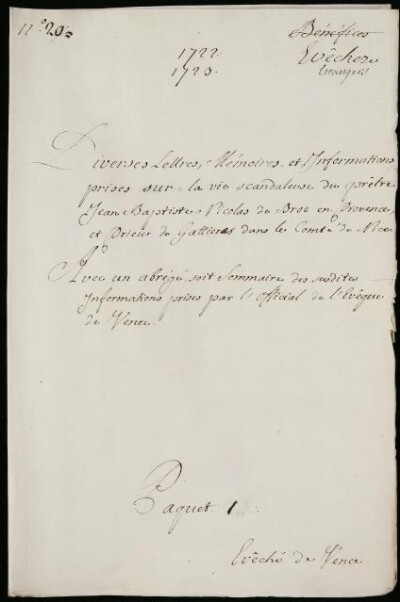 N.º 20=
Bénéfices
Evêchez
Etrangers
1722.
1723.
Diverses Lettres, Mémoires, et Informations
prises sur la vie scandaleuse du prêtre
Jean Baptiste Nicolas du Broc en Provence,
et Prieur de Gattieres dans le Comté de Nice
Avec un abrégé, soit Sommaire des susdites
Informations prises par l'official de l'Evêque
de Vence
Paquet 1
Evêché de Vence